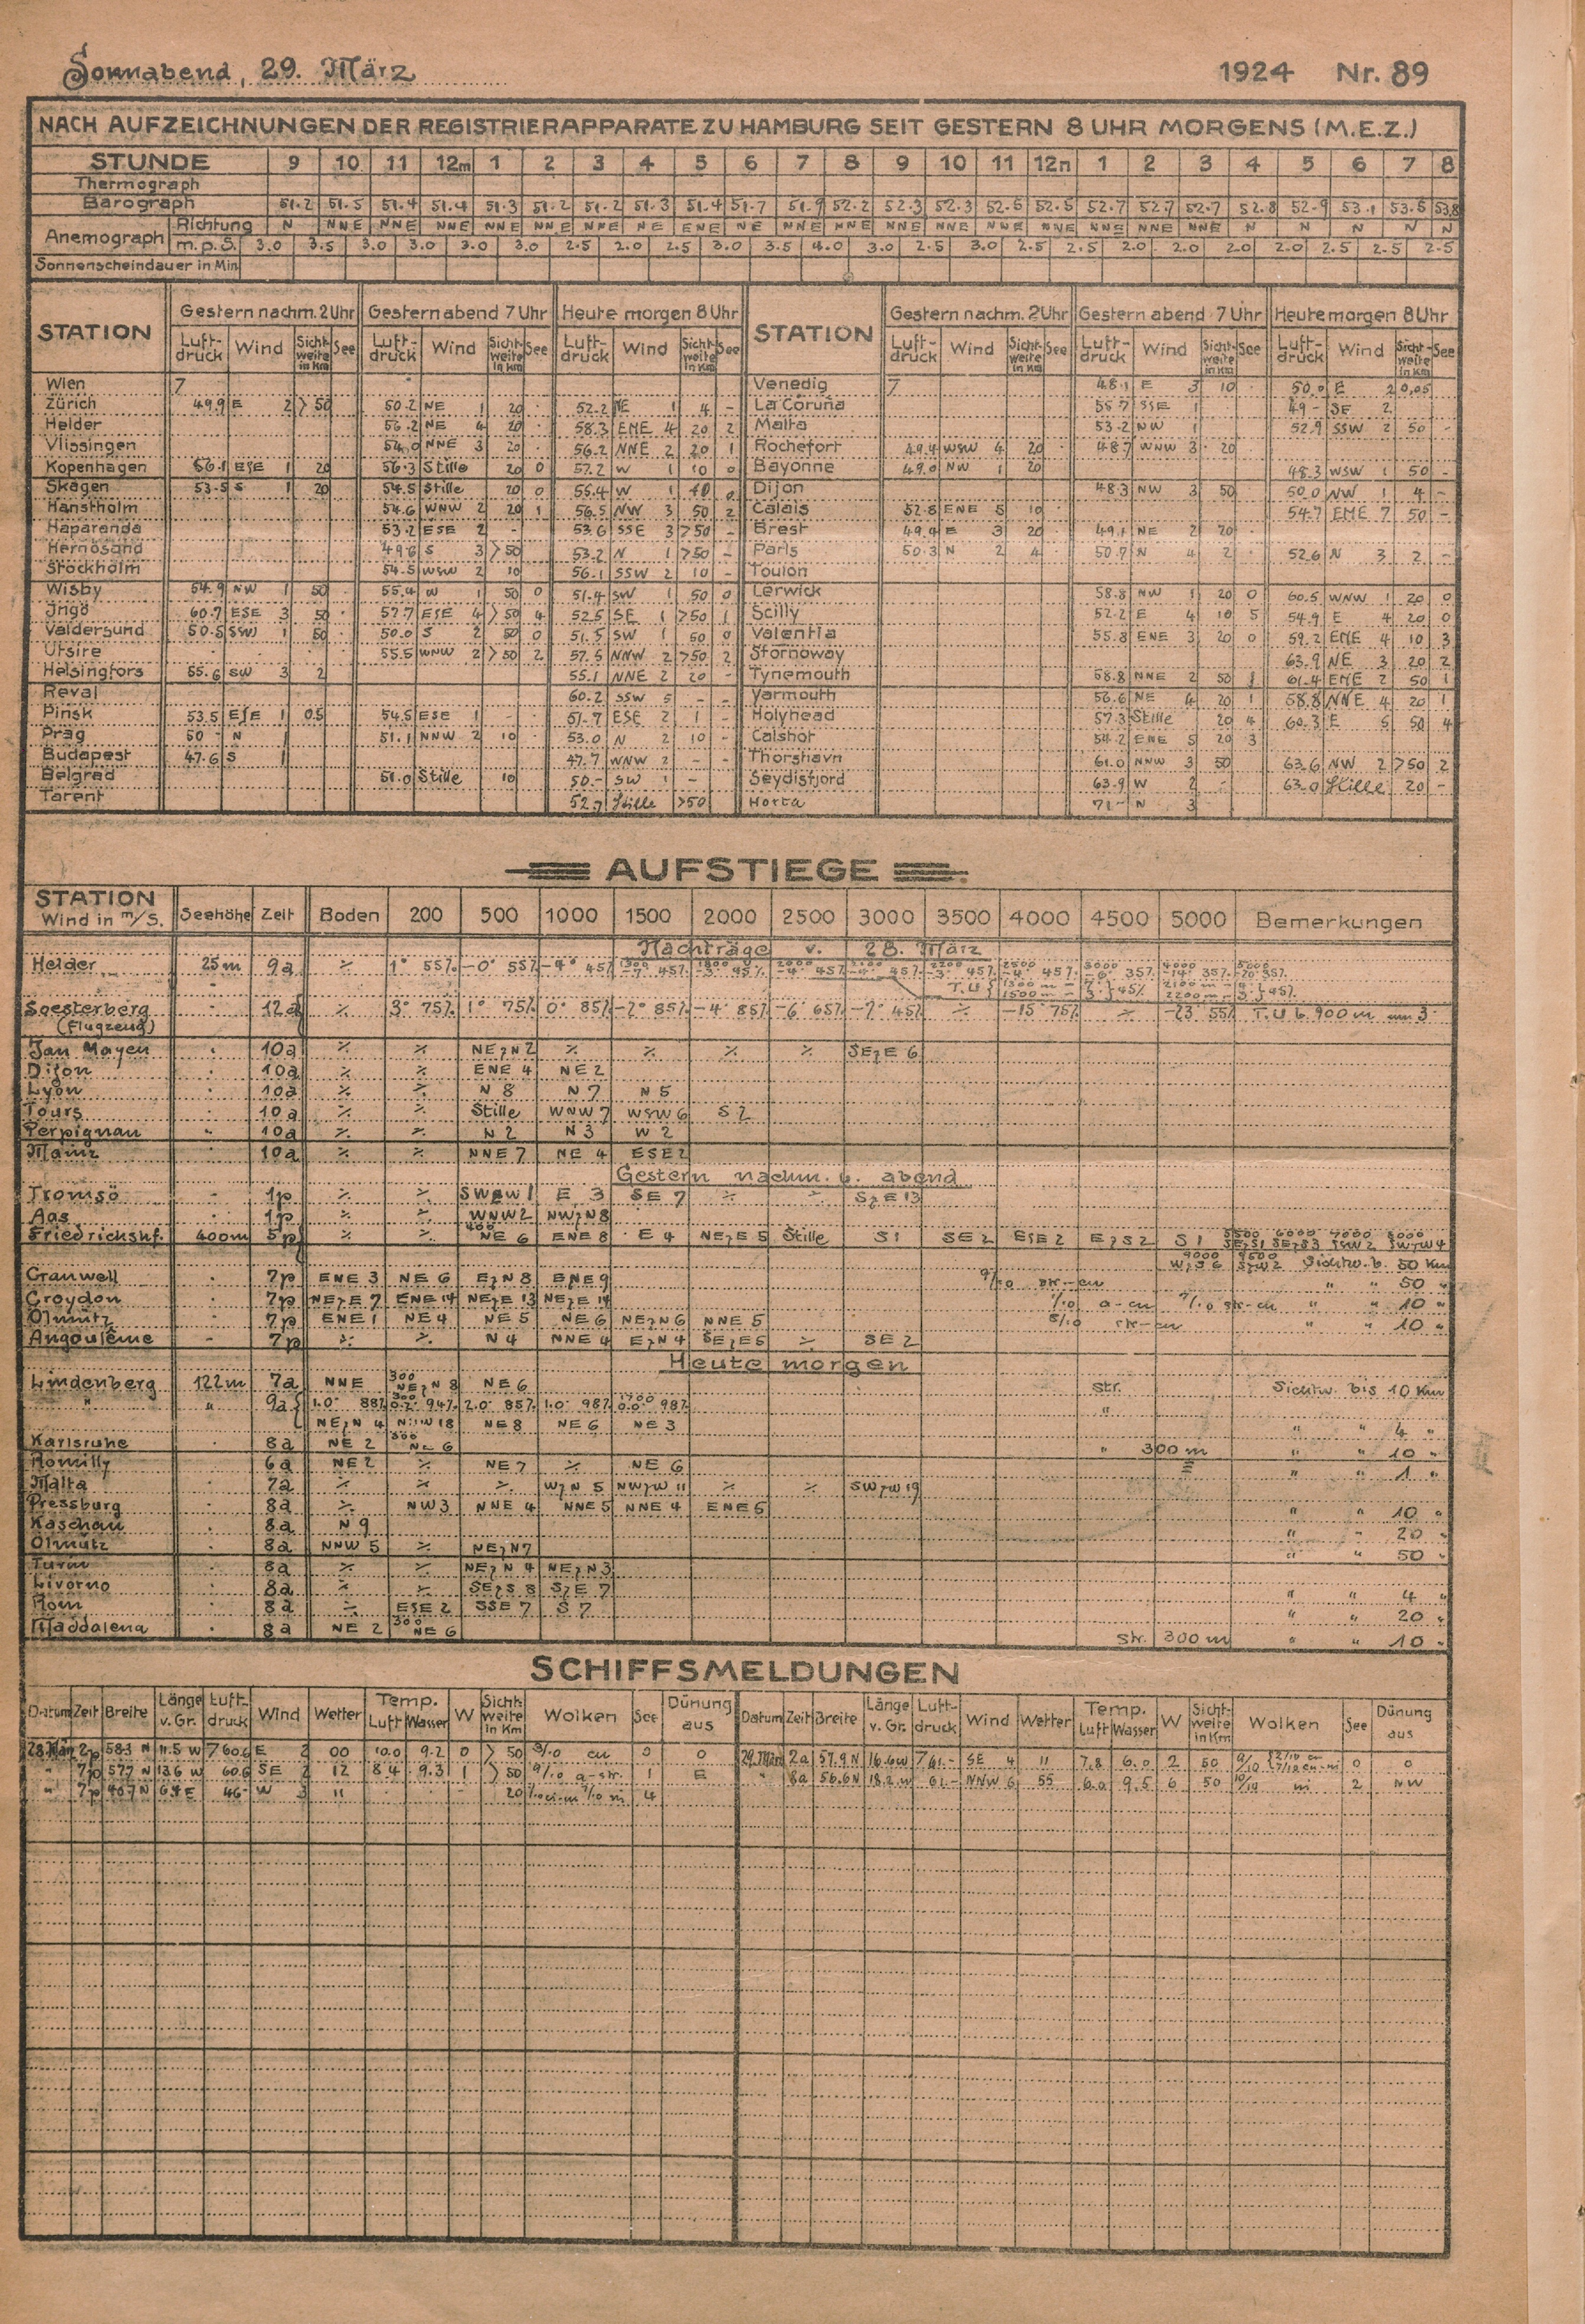 Sonnabend, 29. März 1924 Nr. 89
NACH AUFZEICHNUNGEN DER REGISTRIERAPPARATE ZU HAMBURG SEIT GESTERN 8 UHR MORGENS (M.E.Z.)
STUNDE 9 10 11 12m 1 2 3 4 5 6 7 8 9 10 11 12n 1 2 3 4 5 6 7 8
Thermograph
Barograph 51.2 51.5 51.4 51.4 51.3 51.2 51.2 51.3 51.4 51.7 51.9 52.2 52.3 52.3 52.5 52.5 52.7 52.7 52.7 52.8 52.9 53.1 53.5 53.8
Anemograph Richtung N NNE NNE NNE NNE NNE NNE NE ENE NE NNE NNE NNE NNE NNE NNE NNE NNE NNE N N N N N
m.p.S. 3.0 3.5 3.0 3.0 3.0 3.0 2.5 2.0 2.5 3.0 3.5 4.0 3.0 2.5 3.0 2.5 2.5 2.0 2.0 2.0 2.0 2.5 2.5 2.5
Sonnenscheindauer in Min
STATION Gestern nachm. 2 Uhr Gestern abend 7 Uhr Heute morgen 8 Uhr STATION Gestern nachm. 2 Uhr Gestern abend 7 Uhr Heute morgen 8 Uhr
Luft-druck Wind Sicht-weite in Km See Luft-druck Wind Sicht-weite in Km See Luft-druck Wind Sicht-weite in Km See Luft-druck Wind Sicht-weite in Km See Luft-druck Wind Sicht-weite in Km See Luft-druck Wind Sicht-weite in Km See
Wien 7 Venedig 7 48.1 E 3 10 50.0 E 2 0,05
Zürich 49.9 E 2 >50 50.2 NE 1 20 52.2 NE 1 4 - La Coruña 55.7 SSE 1 49 - SE 2
Helder 56.2 NE 4 20 58.3 ENE 4 20 2 Malta 53.2 NW 1 52.9 SSW 2 50 -
Vlissingen 54.0 NNE 3 20 56.2 NNE 2 20 1 Rochefort 49.4 WSW 4 20 48.7 WNW 3 20
Kopenhagen 56.1 ESE 1 20 56.3 Stille 20 0 57.2 W 1 10 0 Bayonne 49.0 NW 1 20 48.3 WSW 1 50 -
Skagen 53.5 S 1 20 54.5 Stille 20 0 55.4 W 1 10 0 Dijon 48.3 NW 3 50 50.0 NW 1 4 -
Hanstholm 54.6 WNW 2 20 1 56.5 NW 3 50 2 Calais 52.8 ENE 5 10 54.7 ENE 7 50 -
Haparanda 53.2 ESE 2 - 53.6 SSE 3 >50 - Brest 49.4 E 3 20 49.1 NE 2 20
Hernösand 49.6 S 3 >50 53.2 N 1 >50 - Paris 50.3 N 2 4 50.7 N 4 2 52.6 N 3 2 -
Stockholm 54.5 WSW 2 10 56.1 SSW 2 10 - Toulon
Wisby 54.9 NW 1 50 55.4 W 1 50 0 51.4 SW 1 50 0 Lerwick 58.8 NW 1 20 0 60.5 WNW 1 20 0
Ingö 60.7 ESE 3 50 57.7 ESE 4 >50 4 52.5 SE 1 >50 1 Scilly 52.2 E 4 10 5 54.9 E 4 20 0
Valdersund 50.5 SSW 1 50 50.0 S 2 50 0 51.5 SW 1 50 0 Valentia 55.8 ENE 3 20 0 59.2 ENE 4 10 3
Utsire 55.5 WNW 2 >50 2 57.5 NNW 2 >50 2 Stornoway 63.9 NE 3 20 2
Helsingfors 55.6 SW 3 2 55.1 NNE 2 20 - Tynemouth 58.8 NNE 2 50 1 61.4 ENE 2 50 1
Reval 60.2 SSW 5 - - Yarmouth 56.6 NE 4 20 1 58.8 NNE 4 20 1
Pinsk 53.5 ESE 1 0.5 54.5 ESE 1 - 51.7 ESE 2 1 - Holyhead 57.3 Stille 20 4 60.3 E 5 50 4
Prag 50 - N 1 51.1 NNW 2 10 53.0 N 2 10 - Calshot 54.2 ENE 5 20 3
Budapest 47.6 S 1 47.7 WNW 2 - - Thorshavn 61.0 NNW 3 50 63.6 NW 2 >50 2
Belgrad 51.0 Stille 10 50.- SW 1 - Seydisfjord 63.9 W 2 - 63.0 Stille 20 -
Tarent 52.7 Stille >50 Horta 71.- N 3
AUFSTIEGE
STATION Wind in m/S. Seehöhe Zeit Boden 200 500 1000 1500 2000 2500 3000 3500 4000 4500 5000 Bemerkungen
Nachträge v. 28. März
Helder 25m 9a ٪ 1° 55% -0° 55% -4° 45%
T.U { 1300 m 1500 m } 45% 2100 m 2200 m } 45%
Soesterberg 12a ٪ 3° 75% 1° 75% 0° 85% -2° 85% -4° 85% -6° 65% -7° 45% ٪ -15° 75% ٪ -23° 55% T.U b. 900 m um 3°
(Flugzeug)
Jan Mayen 10a ٪ ٪ NEzN 2 ٪ ٪ ٪ ٪ SEzE 6
Dijon 10a ٪ ٪ ENE 4 NE 2
Lyon 10a ٪ ٪ N 8 N 7 N 5
Tours 10a ٪ ٪ Stille WNW 7 WSW 6 S 2
Perpignan 10a ٪ ٪ N 2 N 3 W 2
Mainz 10a ٪ ٪ NNE 7 NE 4 ESE 2
Gestern nachm. u. abend
Tromsö 1p ٪ ٪ SWzW 1 E 3 SE 7 ٪ ٪ SzE 13
Aas 1p ٪ ٪ WNW 2 NWzN 8
Friedrichshf. 400m 5p ٪ ٪ 400 NE 6 ENE 8 E 4 NEzE 5 Stille S 1 SE 2 ESE 2 EzS 2 S 1 5500 SEzS 1 6000 SEzS 3 7000 SSW 2 8000 SWzW 4
9000 WzS 6 9500 SzW 2 Sichtw. b. 50 Km
Cranwell 7p ENE 3 NE 6 EzN 8 ENE 9 9/10 str-cu " " 50 "
Croydon 7p NEzE 7 ENE 14 NEzE 13 NEzE 14 1/10 a-cu 9/10 str-cu " " 10 "
Olmütz 7p ENE 1 NE 4 NE 5 NE 6 NEzN 6 NNE 5 5/10 str-cu " " 10 "
Angoulême 7p ٪ ٪ N 4 NNE 4 EzN 4 SEzE 5 ٪ SE 2
Heute morgen
Lindenberg 122m 7a NNE 300 NEzN 8 NE 6 str. Sichtw. bis 10 Km
" " 9a 1.0° 88% 94% 2.0° 85% 1.0° 98% 98% "
NEzN 4 NNW 18 NE 8 NE 6 NE 3 " " 4 "
Karlsruhe 8a NE 2 300 NE 6 " 300 m " " 10 "
Romilly 6a NE 2 ٪ NE 7 ٪ NE 6 ≡ " " 1 "
Malta 7a ٪ ٪ ٪ WzN 5 NWzW 11 ٪ ٪ SWzW 19
Pressburg 8a ٪ NW 3 NNE 4 NNE 5 NNE 4 ENE 5 " " 10 "
Kaschau 8a N 9 " " 20 "
Olmütz 8a NNW 5 ٪ NEzN 7 " " 50 "
Turin 8a ٪ ٪ NEzN 4 NEzN 3
Livorno 8a ٪ ٪ SEzS 8 SzE 7 " " 4 "
Rom 8a ٪ ESE 2 SSE 7 S 7 " " 20 "
Maddalena 8a NE 2 300 NE 6 Str. 300 m " " 10 "
SCHIFFSMELDUNGEN
Datum Zeit Breite Länge v. Gr. Luft-druck Wind Wetter Temp. Luft Wasser W Sicht-weite in Km Wolken See Dünung aus Datum Zeit Breite Länge v. Gr. Luft-druck Wind Wetter Temp. Luft Wasser W Sicht-weite in Km Wolken See Dünung aus
28.März 2p 58.3 N 11.5 W 760.6 E 2 00 10.0 9.2 0 >50 3/10 cu 0 0 29.März 2a 57.9 N 16.6 W 761.- SE 4 11 7.8 6.0 2 50 9/10 0 0
" 7p 57.7 N 13.6 W 60.6 SE 2 12 8.4 9.3 1 >50 9/10 a-str. 1 E " 8a 56.6 N 18.2 W 61.- NNW 6 55 6.0 9.5 6 50 10/10 ni 2 NW
" 7p 40.7 N 6.4 E 46.- W 3 11 - - - 20 4